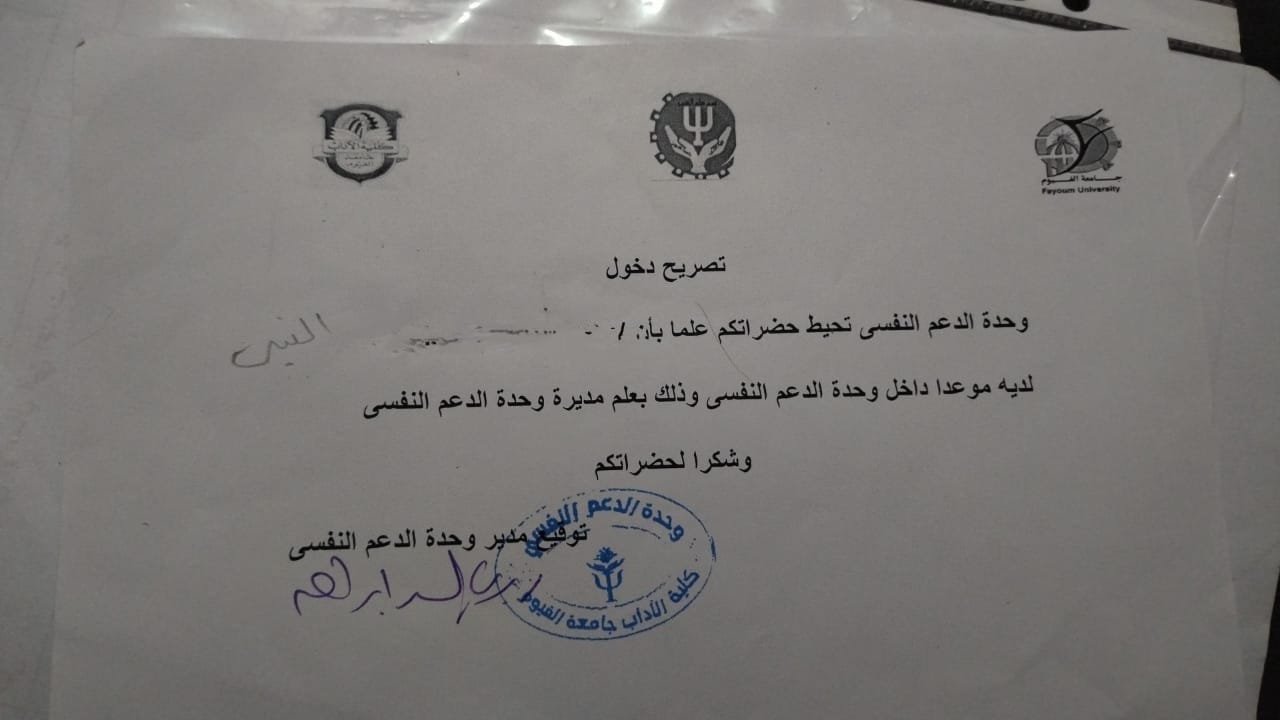 كلية الآداب
جامعة الفيوم
Fayoum University
تصريح دخول
وحدة الدعم النفسى تحيط حضراتكم علما بأن /
لديه موعدا داخل وحدة الدعم النفسى وذلك بعلم مديرة وحدة الدعم النفسى
وشكرا لحضراتكم
توقيع مدير وحدة الدعم النفسى
وحدة الدعم النفسي
كلية الآداب جامعة الفيوم